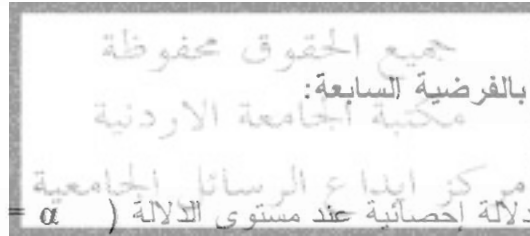 جميع الحقوق محفوظة
بالفرضية السابعة:
مكتبة الجامعة الاردنية
مركز ايداع الرسائل الجامعية
دلالة إحصائية عند مستوى الدلالة ( α =